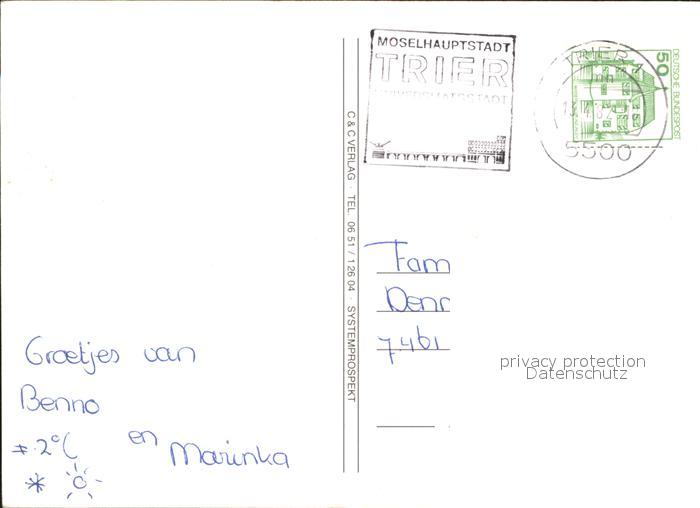 MOSELHAUPTSTADT
TRIER
UNIVERSITÄTSSTADT
TRIER 1
mh
5500
50
DEUTSCHE BUNDESPOST
C & C VERLAG · TEL. 06 51 / 126 04 · SYSTEMPROSPEKT
Fam
Denr
7461
privacy protection
Datenschutz
Groetjes van
Benno
en Marinka
2°C